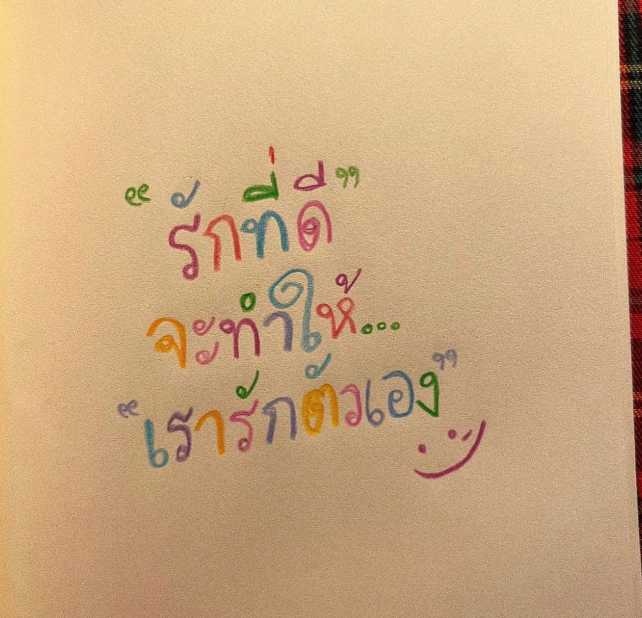 “รักที่ดี”
จะทำให้...
“เรารักตัวเอง”